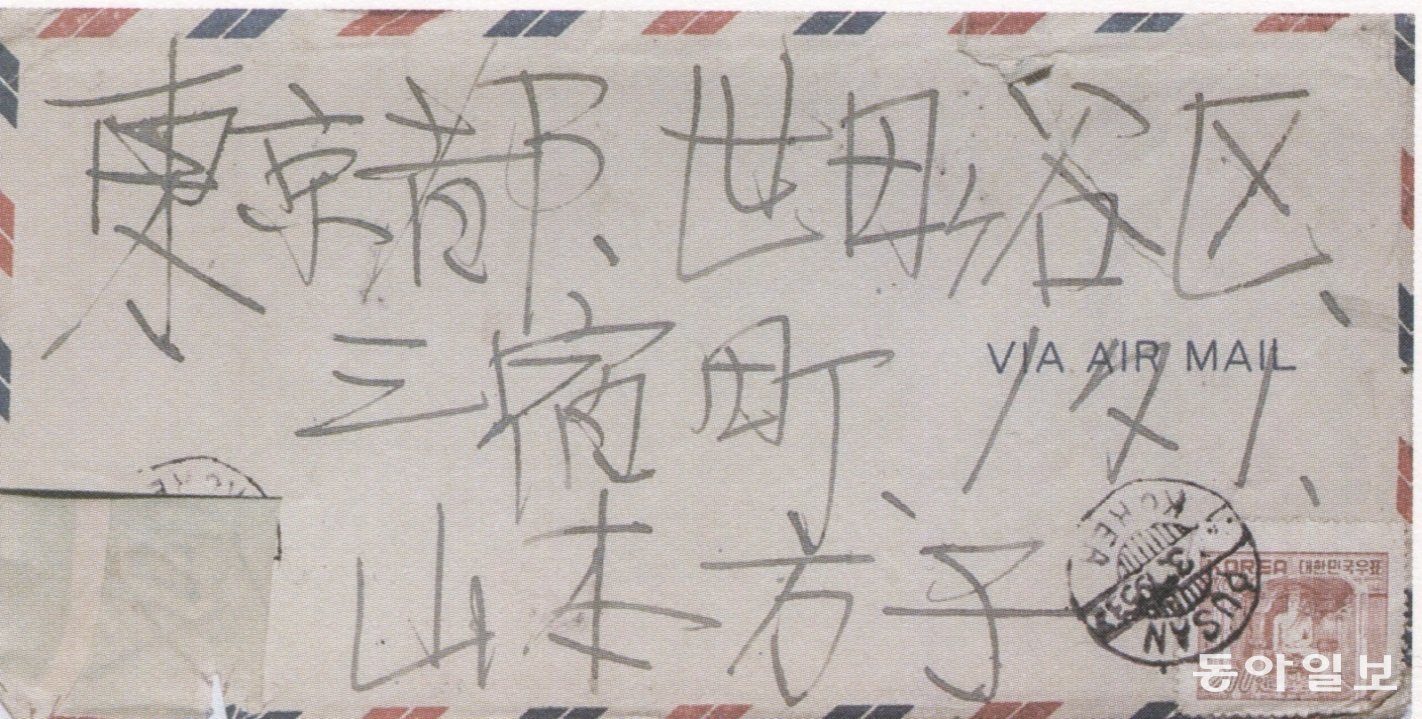 東京都、世田谷区、
三宿町、1
VIA AIR MAIL
山本方子
KOREA
PUSAN
KOREA 대한민국우표
동아일보